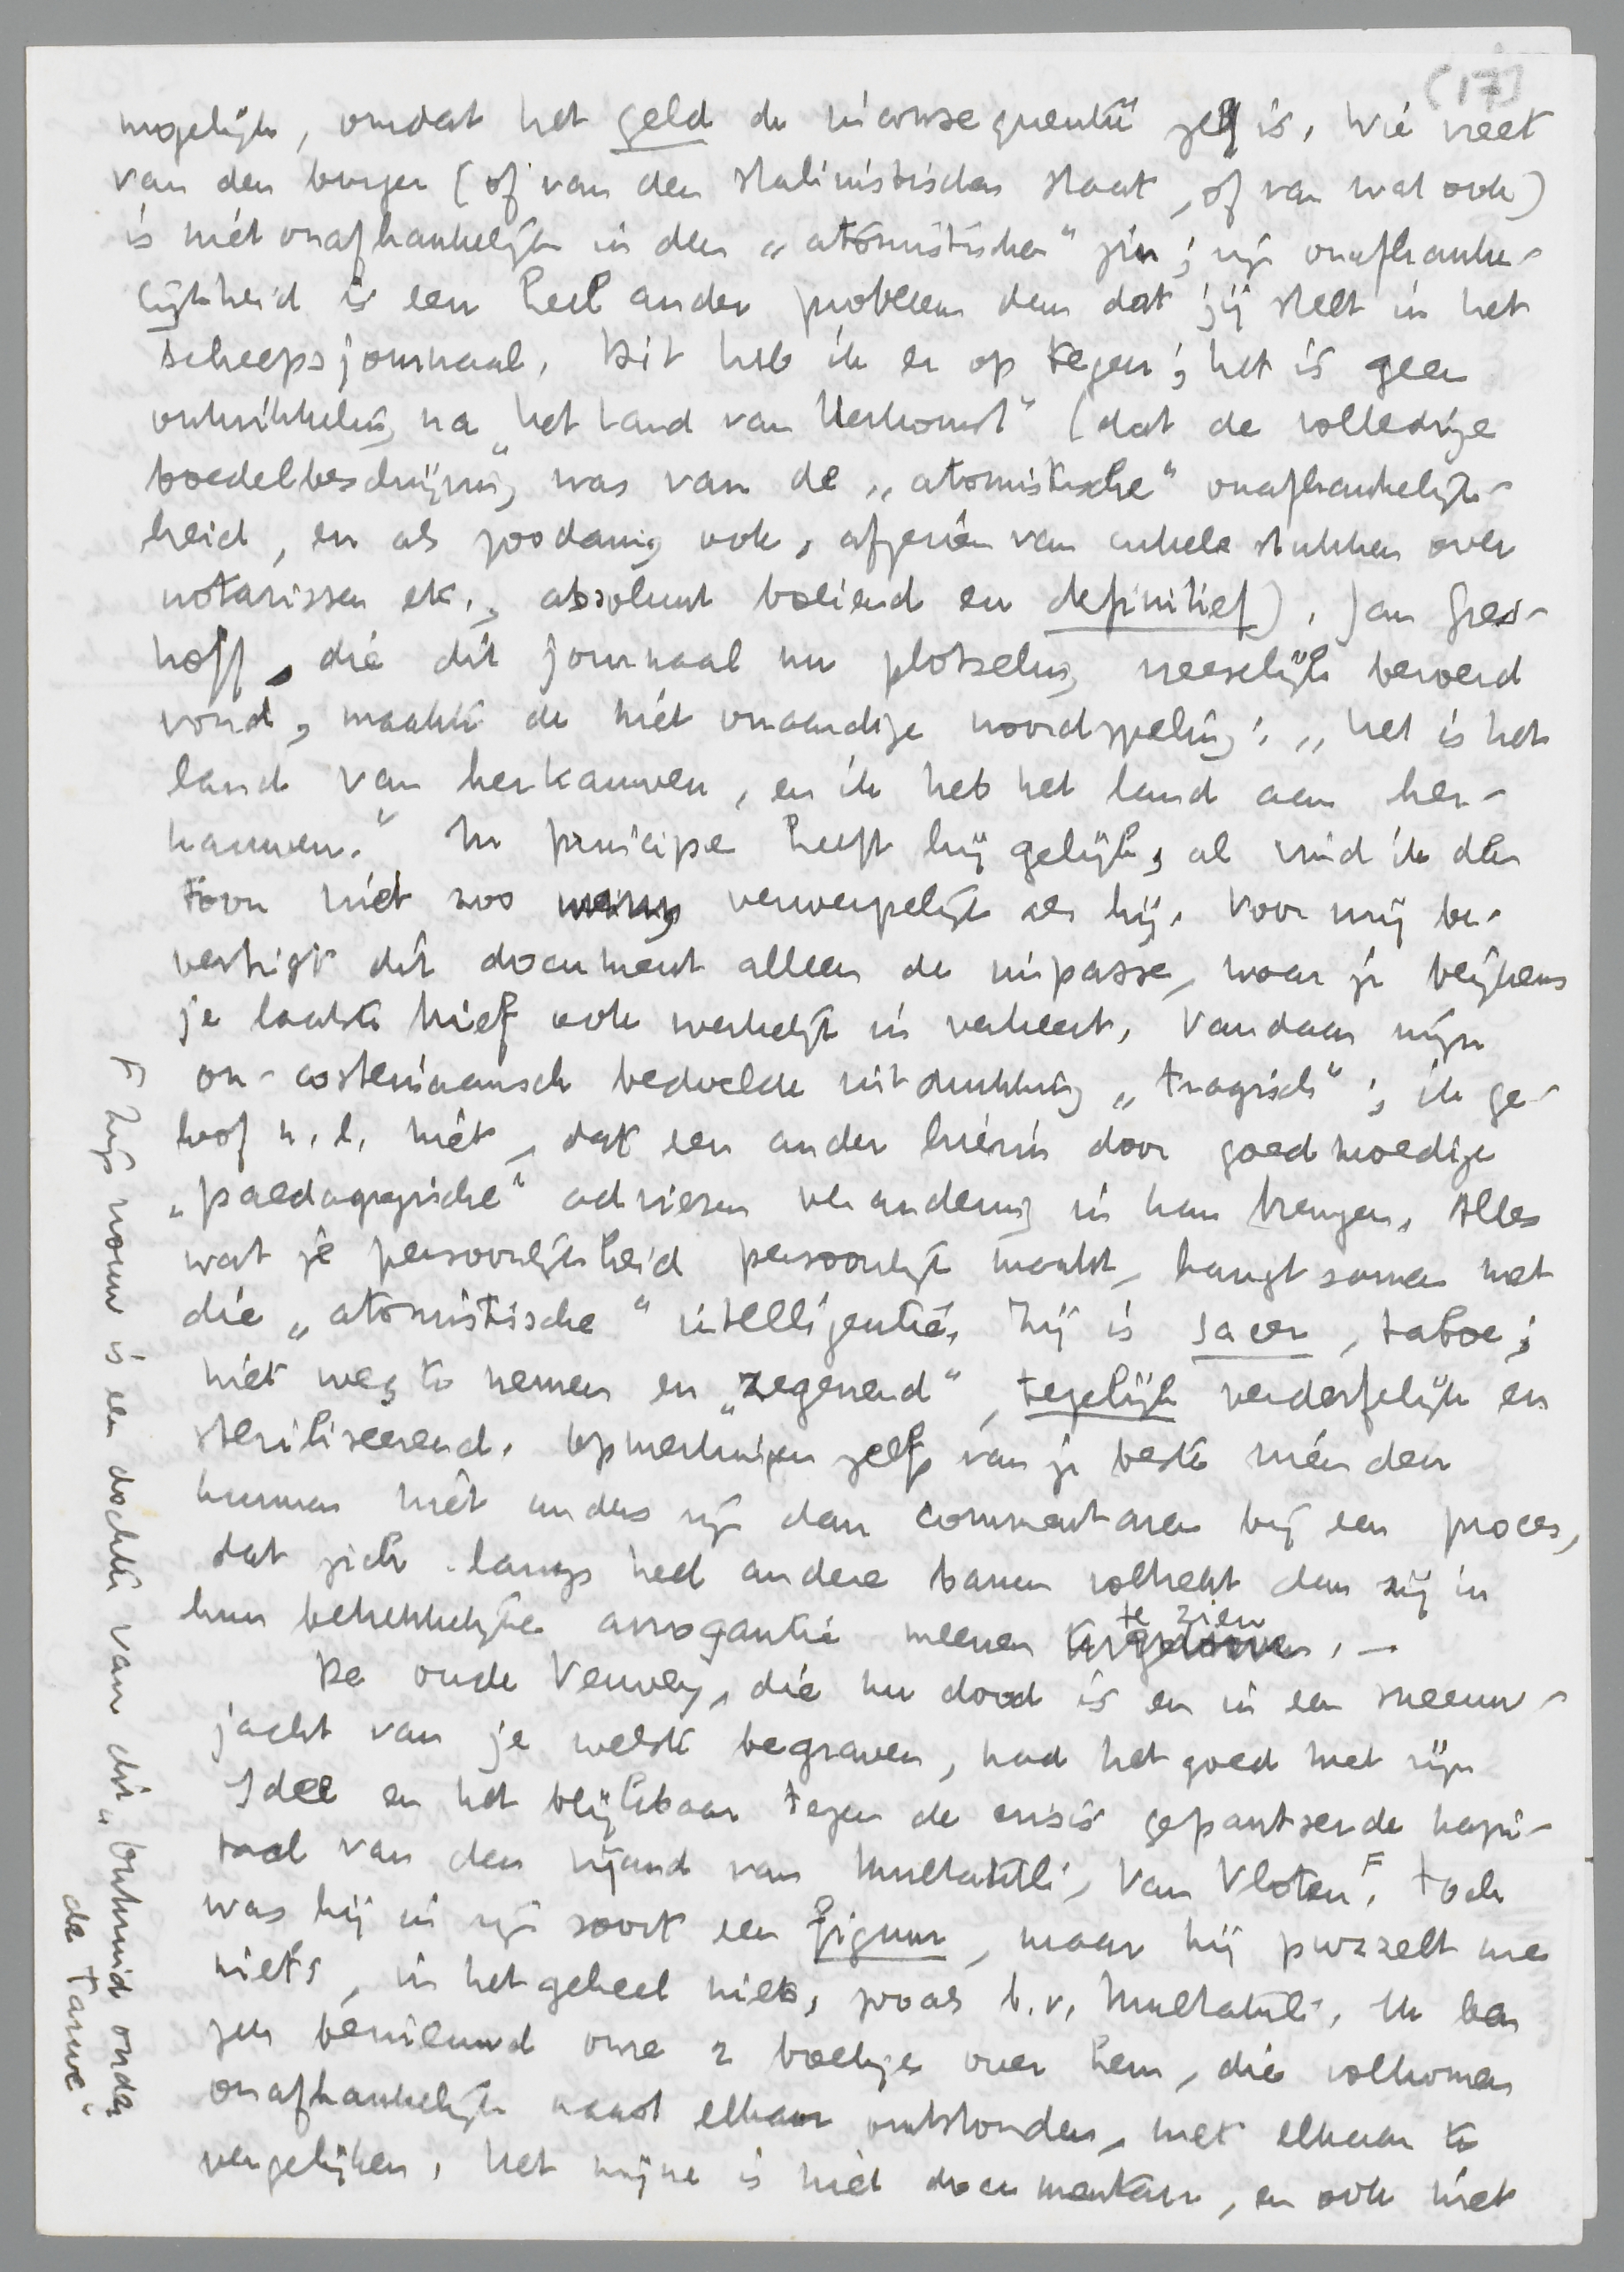 (17)
mogelijk, omdat het geld de inconsequentie zelf is. Wie vreet
van den burger (of van den stalinistischen staat, of van wat ook)
is niet onafhankelijk in den „atomistischen" zin; zijn onafhanke-
lijkheid is een heel ander probleem dan dat jij stelt in het
scheepsjournaal. Dit heb ik er op tegen; het is geen
ontwikkeling na „Het Land van Herkomst" (dat de volledige
boedelbeschrijving was van de „atomistische" onafhankelijk-
heid, en als zoodanig ook, afgezien van enkele stukken over
notarissen etc., absoluut boeiend en definitief). Jan Gres-
hoff, die dit journaal nu plotseling vreeselijk beroerd
vond, maakte de niet onaardige woordspeling: „het is het
land van herkauwen, en ik heb het land aan her-
kauwen." In principe heeft hij gelijk, al vind ik den
toon niet zoo verwerpelijk als hij. Voor mij be-
vestigt dit document alleen de impasse, waar je blijkens
je laatste brief ook werkelijk in verkeert. Vandaar mijn
on-costeriaansch bedoelde uitdrukking „tragisch"; ik ge-
loof n.l. niet, dat een ander hierin door goedmoedige
„paedagogische" adviezen verandering in kan brengen. Alles
wat je persoonlijkheid persoonlijk maakt, hangt samen met
die „atomistische" intelligentie. Zij is sacer, taboe;
niet weg te nemen en „zegenend", tegelijk verderfelijk en
steriliseerend. Opmerkingen zelfs van je beste vrienden
kunnen niet anders zijn dan commentaren bij een proces,
dat zich langs heel andere banen voltrekt dan zij in
hun betrekkelijke arrogantie meenen te zien. —
De oude Verwey, die nu dood is en in een sneeuw-
jacht van je welste begraven, had het goed met zijn
Idee en het blijkbaar tegen de crisis gepantserde kapi-
taal van den vijand van Multatuli, Van Vloten F. Toch
was hij in zijn soort een figuur, maar hij puzzelt me
niets, in het geheel niets, zooals b.v. Multatuli. Ik ben
zeer benieuwd onze 2 boekjes over hem, die volkomen
onafhankelijk naast elkaar ontstonden, met elkaar te
vergelijken. Het mijne is niet documentair, en ook niet
F Zijn vrouw is een dochter van dit „onkruid onder
de tarwe".